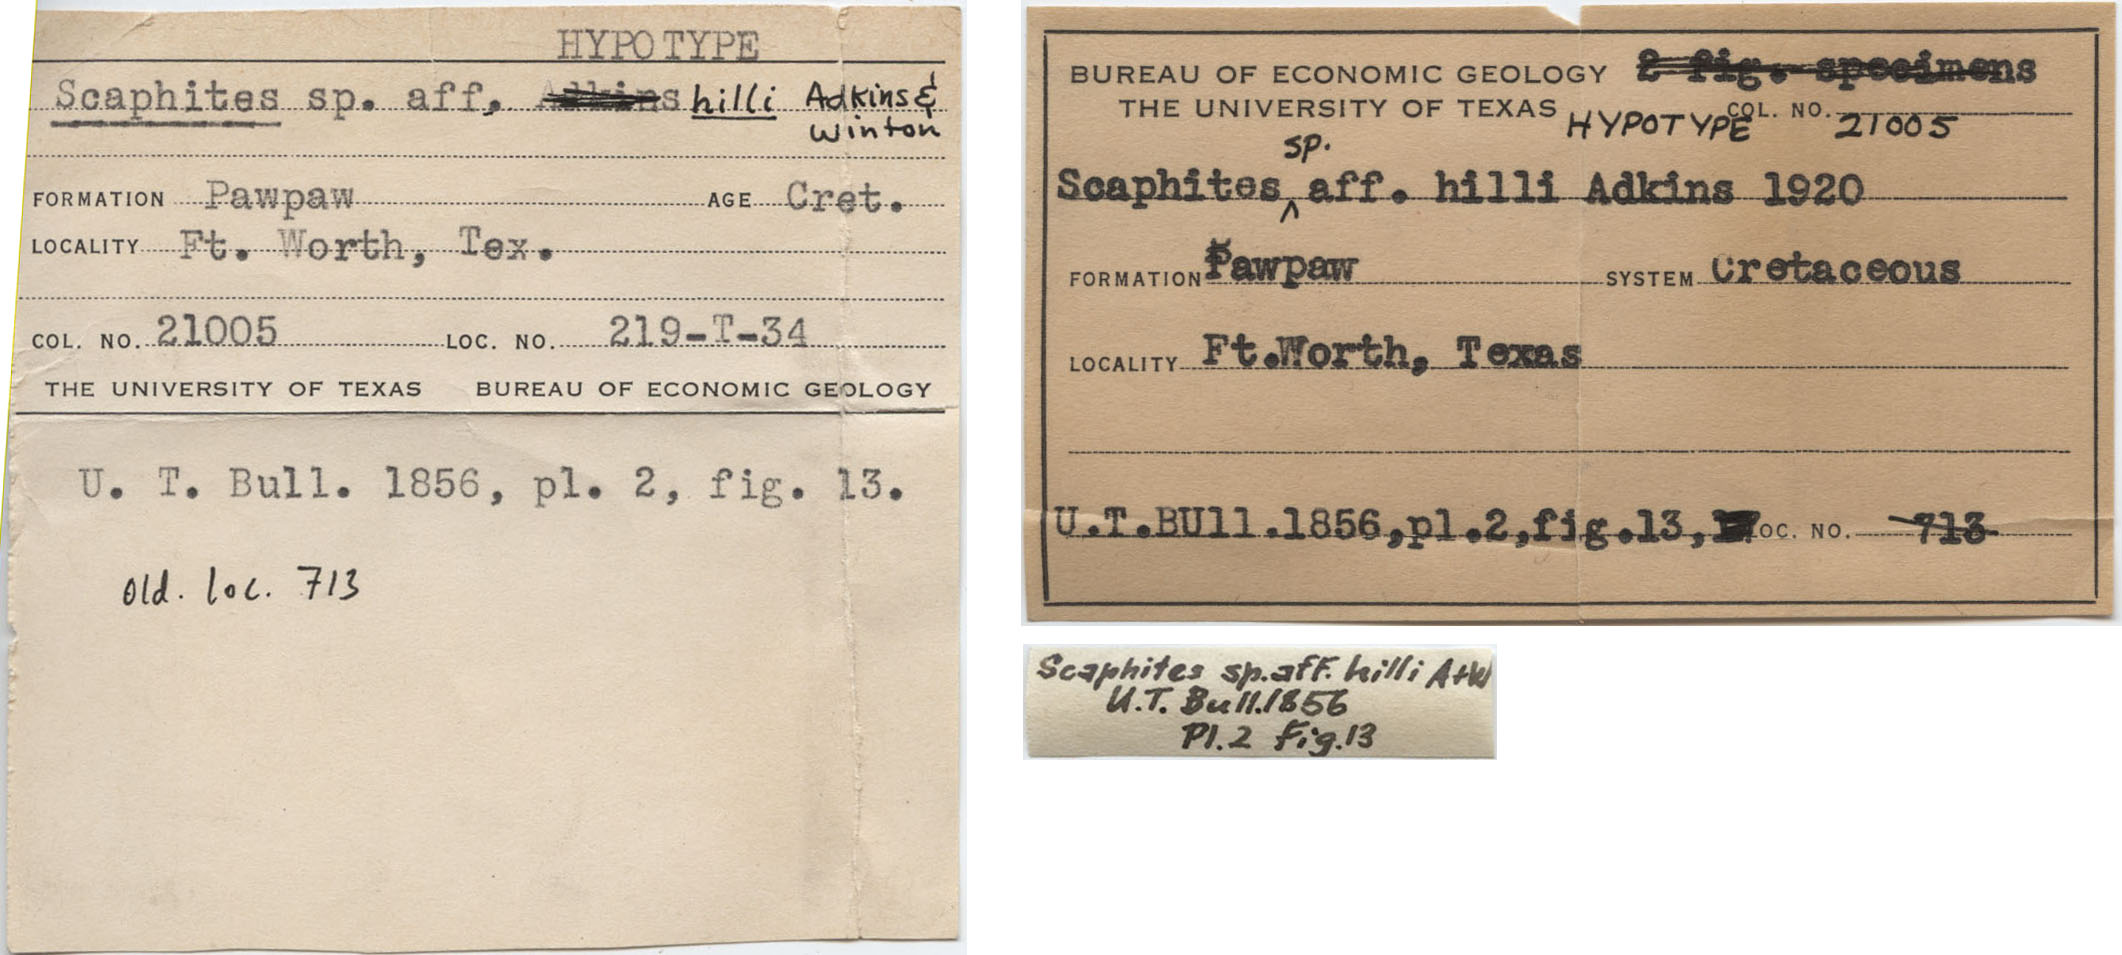 HYPOTYPE
Scaphites sp. aff. Adkins hilli Adkins &
Winton
FORMATION Pawpaw AGE Cret.
LOCALITY Ft. Worth, Tex.
COL. NO. 21005 LOC. NO. 219-T-34
THE UNIVERSITY OF TEXAS BUREAU OF ECONOMIC GEOLOGY
U. T. Bull. 1856, pl. 2, fig. 13.
Old. loc. 713
BUREAU OF ECONOMIC GEOLOGY 2 fig. specimens
THE UNIVERSITY OF TEXAS HYPOTYPE COL. NO. 21005
sp.
Scaphites ^ aff. hilli Adkins 1920
FORMATION Pawpaw SYSTEM Cretaceous
LOCALITY Ft.Worth, Texas
U.T.BUll.1856,pl.2,fig.13, LOC. NO. 713
Scaphites sp. aff. hilli A+W
U.T. Bull.1856
Pl.2 Fig.13